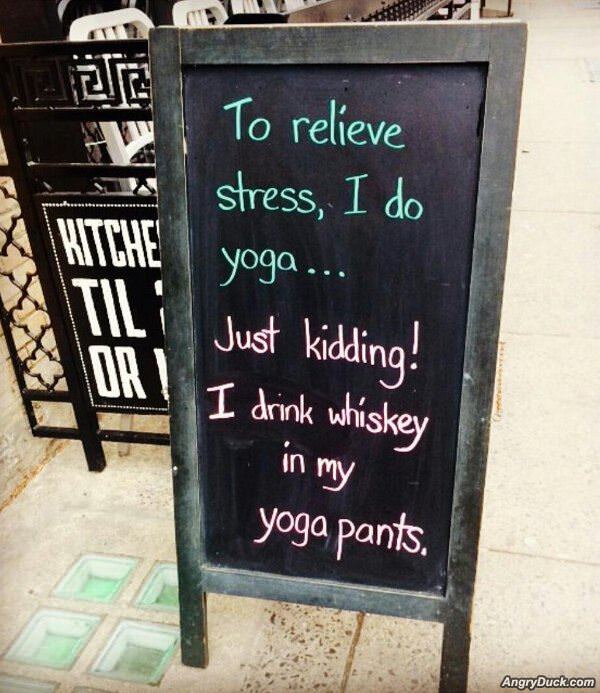 To relieve
stress, I do
yoga...
Just kidding!
I drink whiskey
in my
yoga pants.
TIL
OR
AngryDuck.com